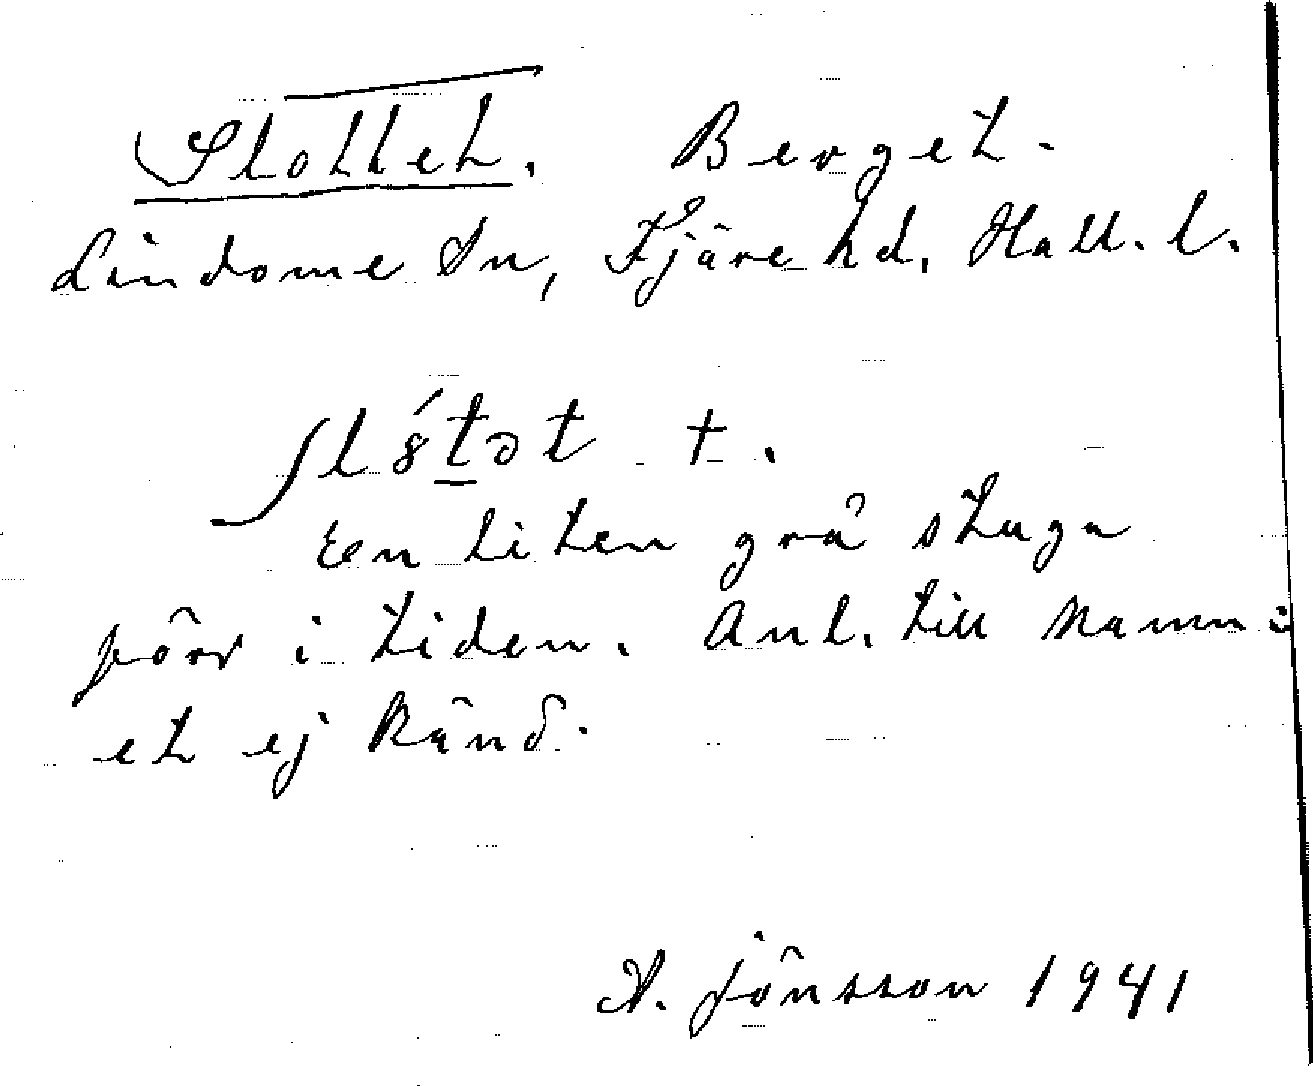 Slottet. Berget.
Lindome Sn, Fjäre hd, Hall. l.
En liten grå stuga
förr i tiden. Anl. till namn-
et ej känd.
A. Jönsson 1941